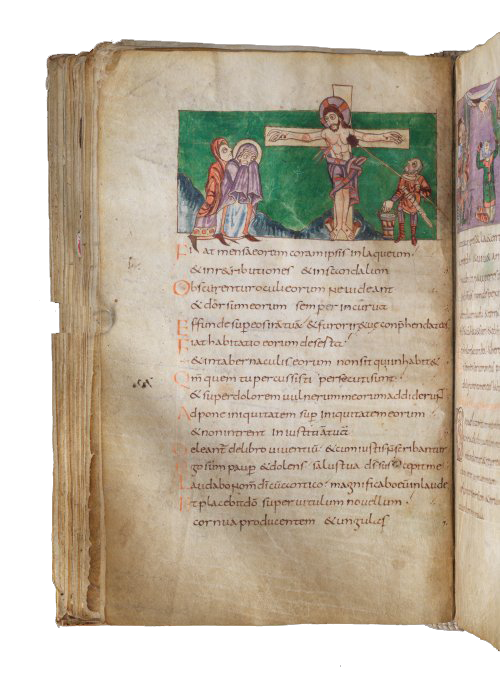 Fiat mensa eorum coram ipsis in laqueum
& in retributiones & in scandalum
Obscurentur oculi eorum ne videant
& dorsum eorum semper incurva
Effunde super eos ira tua & furor irae tuae conprehendat eos
Fiat habitatio eorum deserta
& in tabernaculis eorum non sit qui inhabit&
Qm quem tu percussisti persecuti sunt
& super dolorem vulnerum meorum addiderunt
Adpone iniquitatem sup iniquitatem eorum
& non intrent in iustitia tua
Deleant de libro viventiu & cum iustis scribantur
Ego sum paup & dolens salus tua ds suscepit me
Laudabo nom di cu cantico magnificabo eu in laude
Et placebit do super vitulum novellum
cornua producentem & ungulas